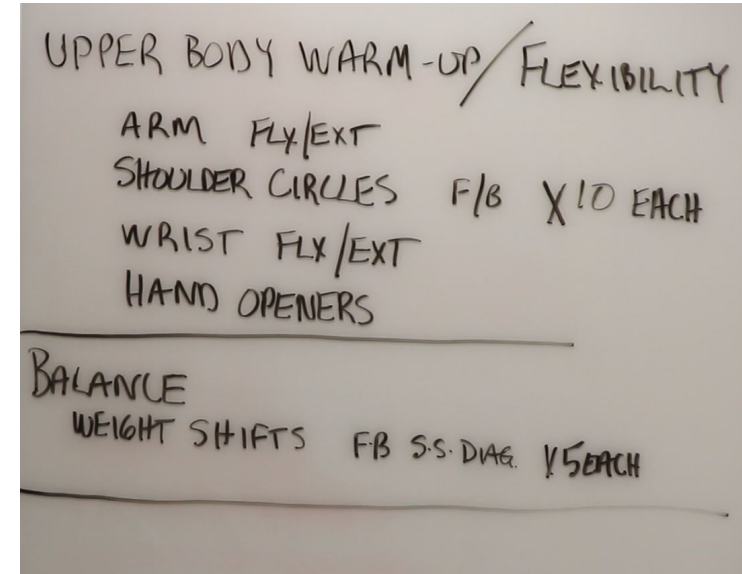 UPPER BODY WARM-UP/FLEXIBILITY
ARM FLX/EXT
SHOULDER CIRCLES F/B X10 EACH
WRIST FLX/EXT
HAND OPENERS
BALANCE
WEIGHT SHIFTS F-B S.S. DIAG. X5 EACH